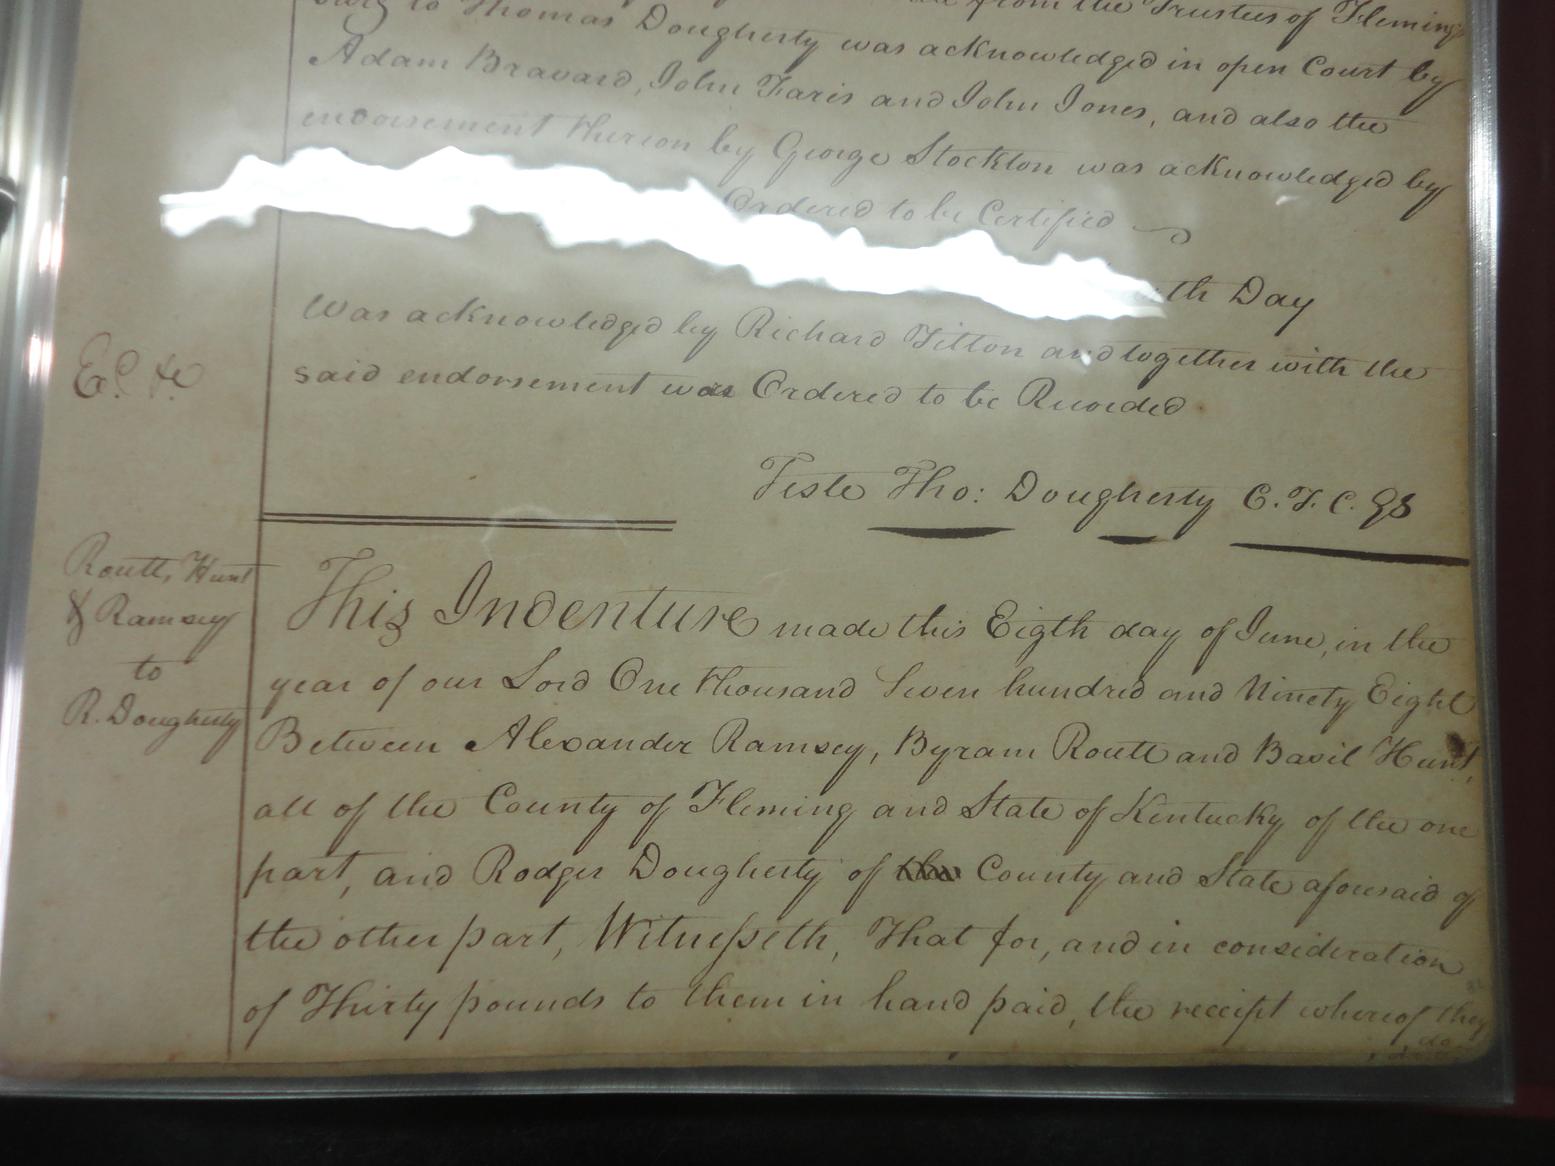 from the Trustees of Fleming
burg to Thomas Dougherty was acknowledged in open Court by
Adam Bravard, John Faris and John Jones, and also the
endorsement thereon by George Stockton was acknowledged by
Ordered to be Certified
th Day
Was acknowledged by Richard Tilton and together with the
said endorsement was Ordered to be Recorded
Teste Tho: Dougherty C.F.C. QS
Routt, Hunt
& Ramsey
to
R. Dougherty
This Indenture made this Eigth day of June, in the
year of our Lord One thousand Seven hundred and Ninety Eight
Between Alexander Ramsey, Byram Routt and Basil Hunt,
all of the County of Fleming and State of Kentucky of the one
part, and Rodger Dougherty of County and State aforesaid of
the other part, Witnesseth, That for, and in consideration
of Thirty pounds to them in hand paid, the receipt whereof they
do